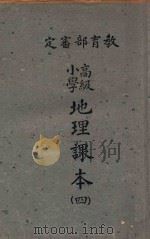 教育部審定
高級
小學
地理課本
(四)